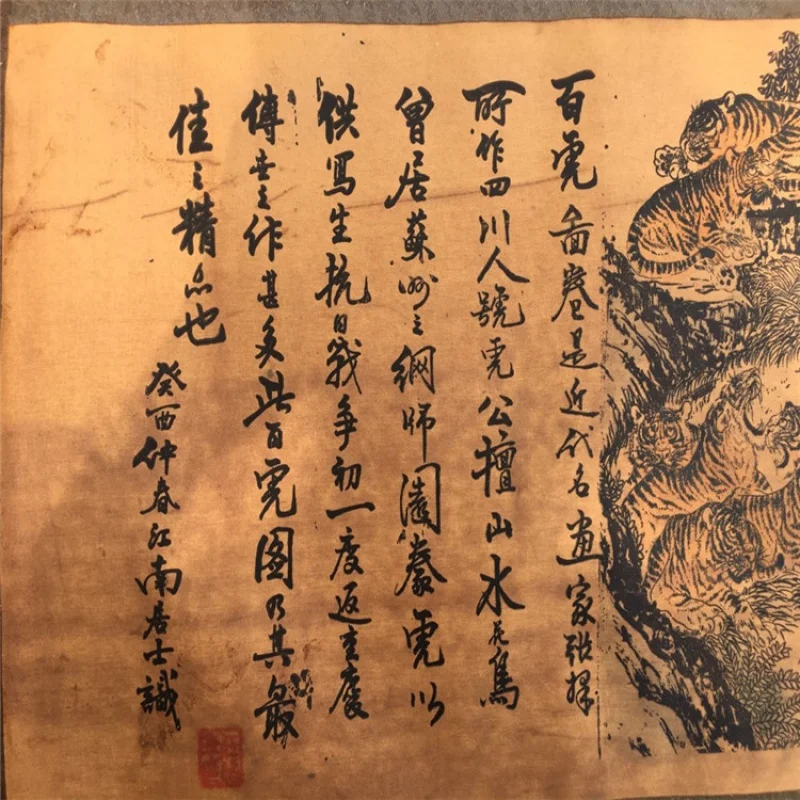 百虎圖卷是近代名畫家張擇
所作四川人號虎公擅山水花鳥
曾居蘇州之網師園豢虎以
供寫生抗日戰爭初一度返重慶
傳世之作甚多此百虎圖乃其最
佳之精品也
癸酉仲春江南居士識